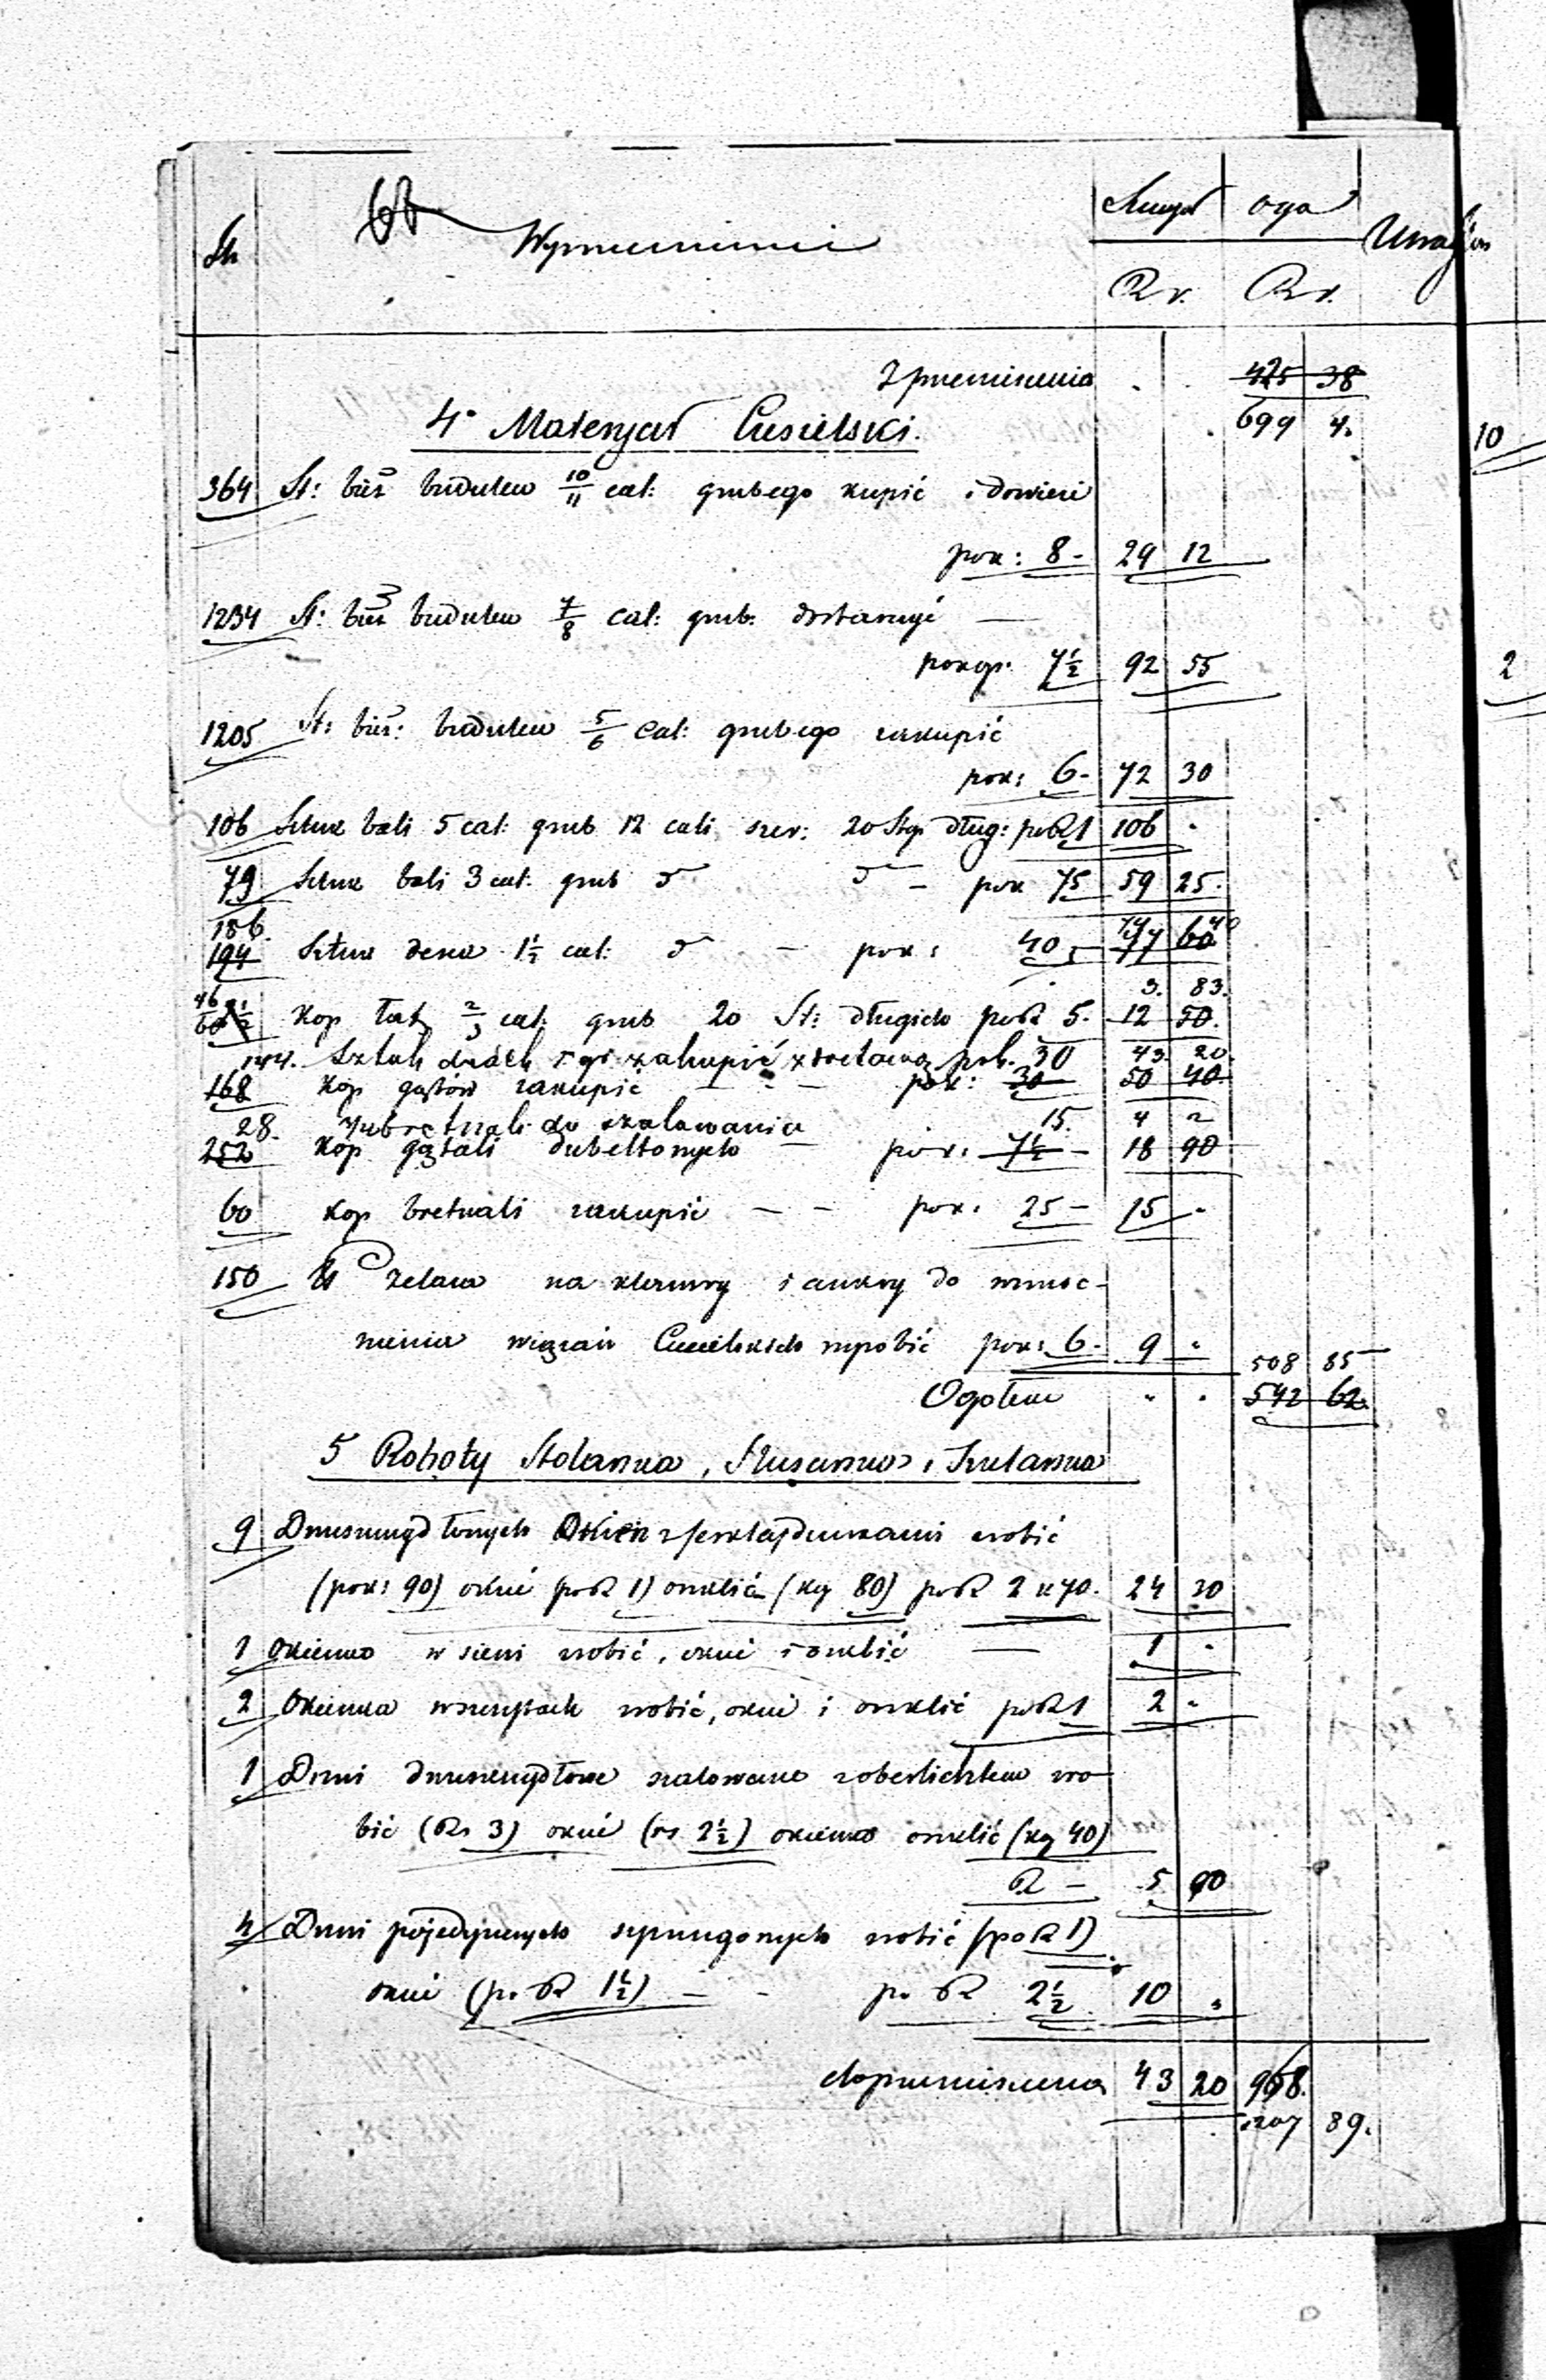 Wymienienie
Szczeg oga Uwagi
R. k. R. k.
Z przeniesienia . . 425 38
699 4.
4° Materyał Ciesielski.
364 St: bież budulcu 10/11 cal: grubego kupić i dowieść
pok: 8 - 29 12
1234 St: bież budulcu 7/8 cal: grub: dostarczyć —
pokop. 7½ 92 55
1205 St: bież: budulcu 5/6 cal: grubego zakupić
pok: 6 - 72 30
106 Sztuk bali 5 cal: grub 12 cali szer: 20 Stop dług: po R 1 106 "
79 Sztuk bali 3 cal: grub d° d° - pok 75 59 25.
186. 74 40
194 Sztuk desek 1½ cal: d° - pok: 40 - 77 60
46 3. 83.
Kop łat 2/3 cal: grub 20 St: długich po R 5. 12 50.
144. Sztuk zakupić pok. 30 43. 20.
168 Kop gątów zakupić - - pok: 30 50 40
28. do szalowania 15. 4 2
252 Kop dubeltowych pok: 7½ - 18 90
60 Kop bretnali zakupić - - pok: 25 - 15 "
150 żelaza na klamry i ankry do wzmoc-
nienia wiązań Ciesielskich wyrobić pok: 6 - 9 "
508 85
Ogółem " " 542 62.
5 Roboty Stolarska, Slusarska, i Szklarska
9 Dwuskrzydłowych Okien z futrami zrobić
(pok: 90) okuć (po R 1) oszklić (kop 80) po R 2 k 70. 24 30
1 Okienko w sieni zrobić, okuć i oszklić — 1 "
2 Okienka w szczytach zrobić, okuć i oszklić po R 1 2 "
1 Drzwi dwuskrzydłowe szalowane z oberlichtem zro-
bić (Rs 3) okuć (rs 2½) okienko oszklić (kop 40)
R - 5 90
4 Drzwi pojedynczych szpungowych zrobić (po R 1)
okuć (po R 1½) - - po R 2½ 10 "
do przeniesienia 43 20 968.
1207 89.
10
2
8